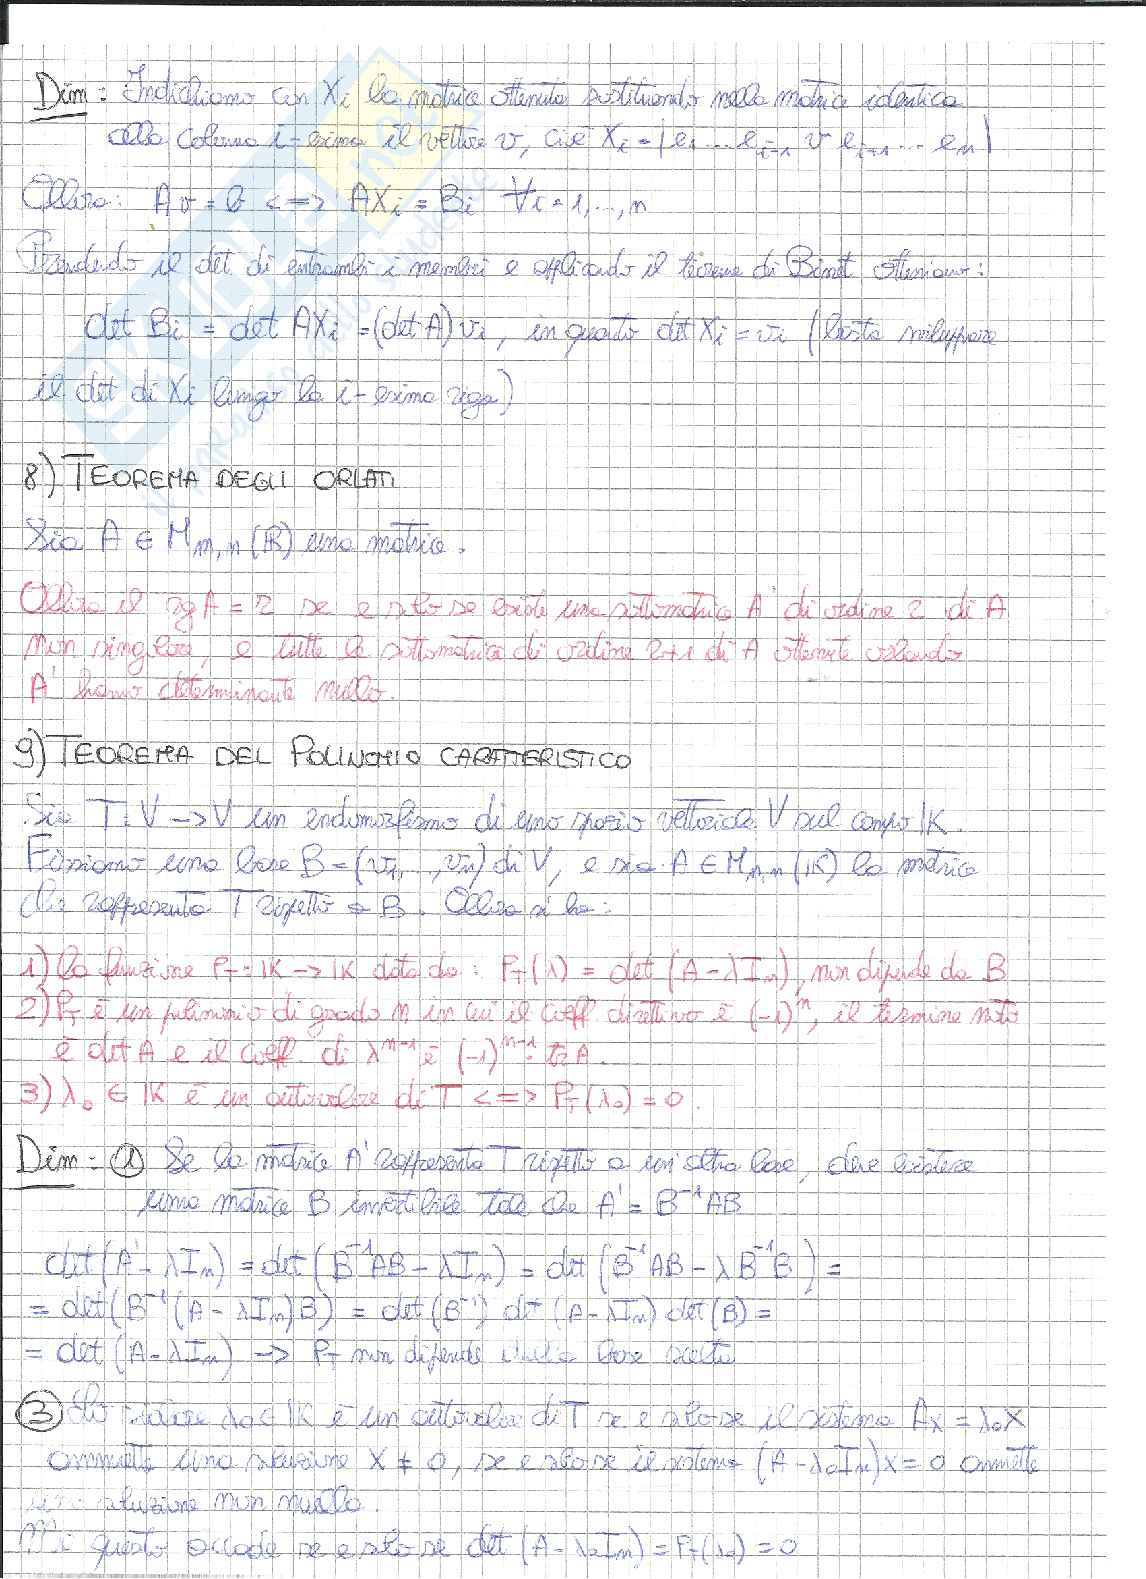 Dim: Indichiamo con Xi la matrice ottenuta sostituendo nella matrice identica
alla colonna i-esima il vettore v, cioè Xi = |e1 ... ei-1 v ei+1 ... en|
Allora: Av = b <=> AXi = Bi ∀i = 1,..,n
Prendendo il det di entrambi i membri e applicando il teorema di Binet otteniamo:
det Bi = det AXi = (det A)vi, in quanto det Xi = vi (basta sviluppare
il det di Xi lungo la i-esima riga)
8) TEOREMA DEGLI ORLATI
Sia A ∈ Mm,n(ℝ) una matrice.
Allora il rg A = r se e solo se esiste una sottomatrice A' di ordine r di A
non singolare, e tutte le sottomatrice di ordine r+1 di A ottenute orlando
A' hanno determinante nullo.
9) TEOREMA DEL POLINOMIO CARATTERISTICO
Sia T: V -> V un endomorfismo di uno spazio vettoriale V sul campo 𝕂.
Fissiamo una base B = (v1,..,vn) di V, e sia A ∈ Mn,n(𝕂) la matrice
che rappresenta T rispetto a B. Allora si ha:
1) la funzione PT: 𝕂 -> 𝕂 data da: PT(λ) = det(A - λIn), non dipende da B
2) PT è un polinomio di grado n in cui il coeff direttivo è (-1)^n, il termine noto
è det A e il coeff. di λ^n-1 è (-1)^n-1 · tr A.
3) λ0 ∈ 𝕂 è un autovalore di T <=> PT(λ0) = 0.
Dim: ① Se la matrice A' rappresenta T rispetto a un'altra base, deve esistere
una matrice B invertibile tale che A' = B^-1AB
det(A' - λIn) = det(B^-1AB - λIn) = det(B^-1AB - λB^-1B) =
= det(B^-1(A - λIn)B) = det(B^-1) det(A - λIn) det(B) =
= det(A - λIn) -> PT non dipende dalla base scelta
③ Lo scalare λ0 ∈ 𝕂 è un autovalore di T se e solo se il sistema Ax = λ0x
ammette una soluzione x ≠ 0, se e solo se il sistema (A - λ0In)x = 0 ammette
una soluzione non nulla.
questo accade se e solo se det(A - λ0In) = PT(λ0) = 0